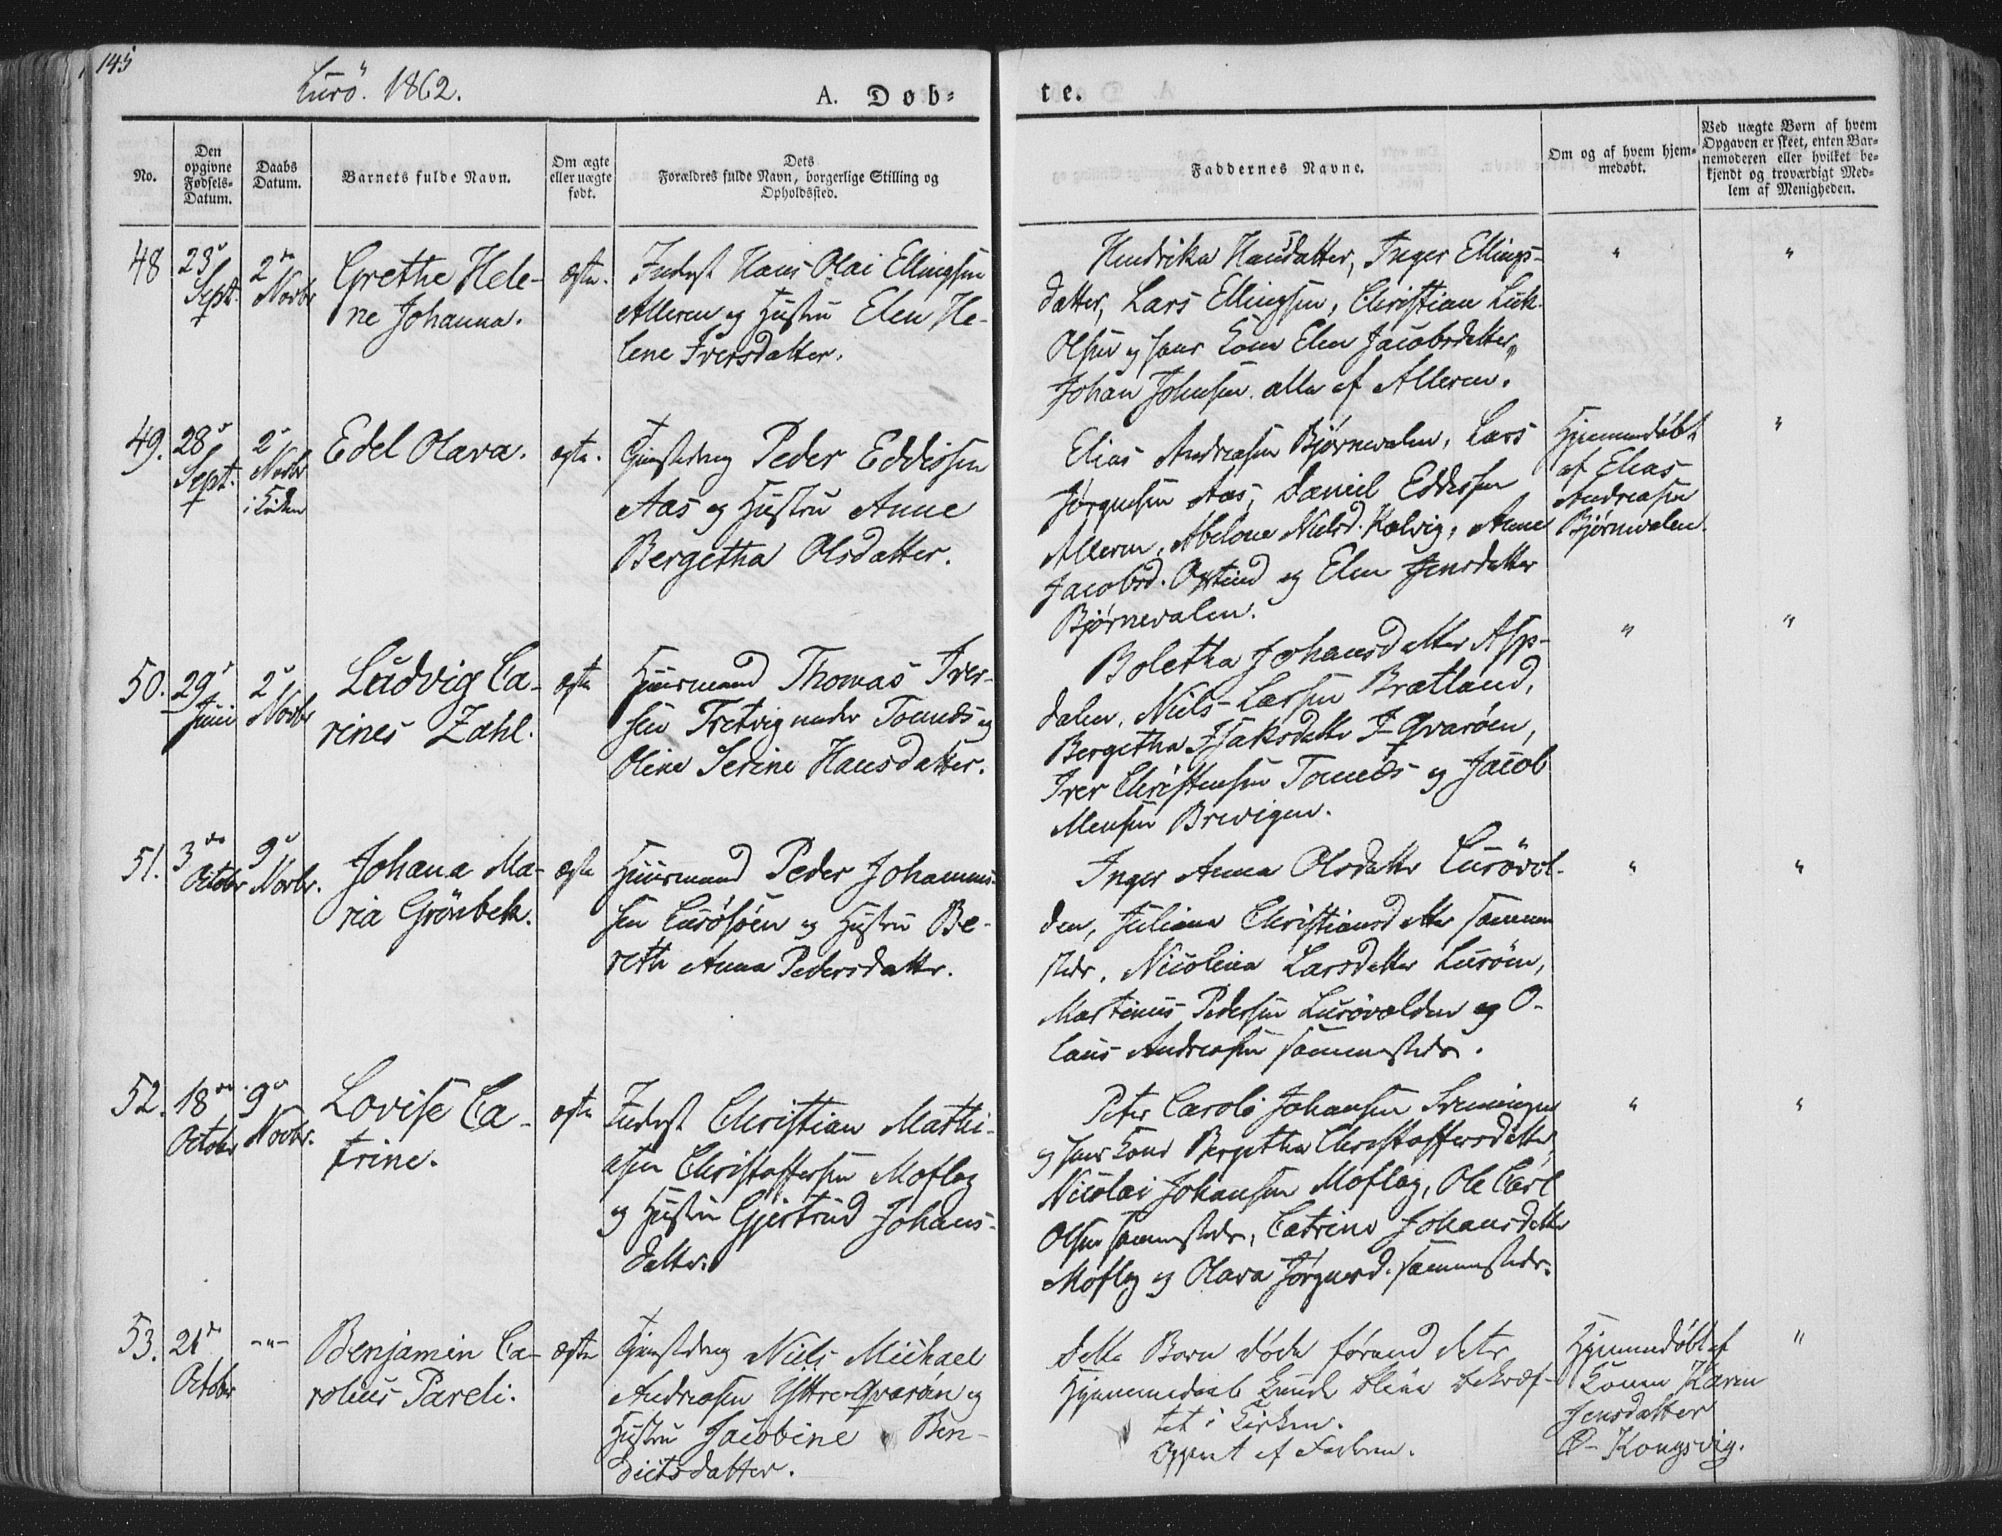 145
Lurö. 1862.
A. Døb-
te.
No.
Den
opgivne
Fødsels-
Datum.
Daabs
Datum.
Barnets fulde Navn.
Om ægte
eller uægte
født.
Dets
Forældres fulde Navn, borgerlige Stilling og
Opholdssted.
Faddernes Navne.
Om og af hvem hjem-
medøbt.
Ved uægte Børn af hvem
Opgaven er skeet, enten Bar-
nemoderen eller hvilket be-
kjendt og troværdigt Med-
lem af Menigheden.
48
23
Sept.
2
Novbr
Grethe Hele-
ne Johanna.
ægte.
Inderst Hans Olai Ellingsen
Alleren og Hustru Elen He-
lene Iversdatter.
Hendrika Hansdatter, Inger Ellings-
datter, Lars Ellingsen, Christian Luk.
Olsen og hans Kone Elen Jacobsdatter,
Johan Johnsen. alle af Alleren.
"
"
49.
28
Sept.
2
Novbr
i Kirken
Edel Olava.
ægte.
Peder Eddissen
Aas og Hustru Anne
Bergetha Olsdatter.
Elias Andreasen Bjørnevalen, Lars
Jørgensen Aas, Daniel Eddissen
Alleren, Abelone Nielsd. Kalvig, Anne
Jacobsd. og Elen Jensdatter
Bjørnevalen.
Hjemmedøbt
af Elias
Andreasen
Bjørnevalen.
"
50.
29
Juni
2
Novbr
Ludvig Ca-
rines Zahl.
ægte
Huusmand Thomas Iver-
sen Tretvig under Tonnes og
Oline Serine Hansdatter.
Boletha Johansdatter Asp-
dalen, Niels Larsen Brætland,
Bergetha Isaksdatter I-Qvarøen,
Iver Christensen Tonnes og Jacob
Mensen Brevigen.
"
"
51.
3
Octobr
9
Novbr.
Johana Ma-
ria Grönbek.
ægte
Huusmand Peder Johannes-
sen Lurösöen og Hustru Be-
reth Anna Pedersdatter.
Inger Anna Olsdatter Lurövol-
den, Juliana Christiansdatter sammen
steds, Nicolina Larsdatter Luröen,
Martinus Pedersen Lurövolden og O-
laus Andreasen sammesteds.
"
"
52.
18
Octobr
9
Novbr.
Lovise Ca-
trine.
ægte
Inderst Christian Mathi-
asen Christoffersen Moflag
og Hustru Gjertrud Johans-
datter.
Peter Carolö Johansen Svenningen
og hans Kone Bergetha Christoffersdatter,
Nicolai Johansen Moflag, Ole Carl
Olsen sammesteds, Catrine Johansdatter
Moflag og Olava Jørgensd. sammesteds.
"
"
53.
21
Octobr
-"-
Benjamin Ca-
rolius Pareli.
ægte
Niels Michael
Andreasen Yttre-Qvarøen og
Hustru Jacobine Ben-
dictsdatter.
Dette Barn døde førend dets
Hjemmedaab kunde blive bekræf-
tet i Kirken.
Opgivet af Faderen.
Hjemmedøbt af
Konen Karen
Jensdatter
Kongsvig.
"